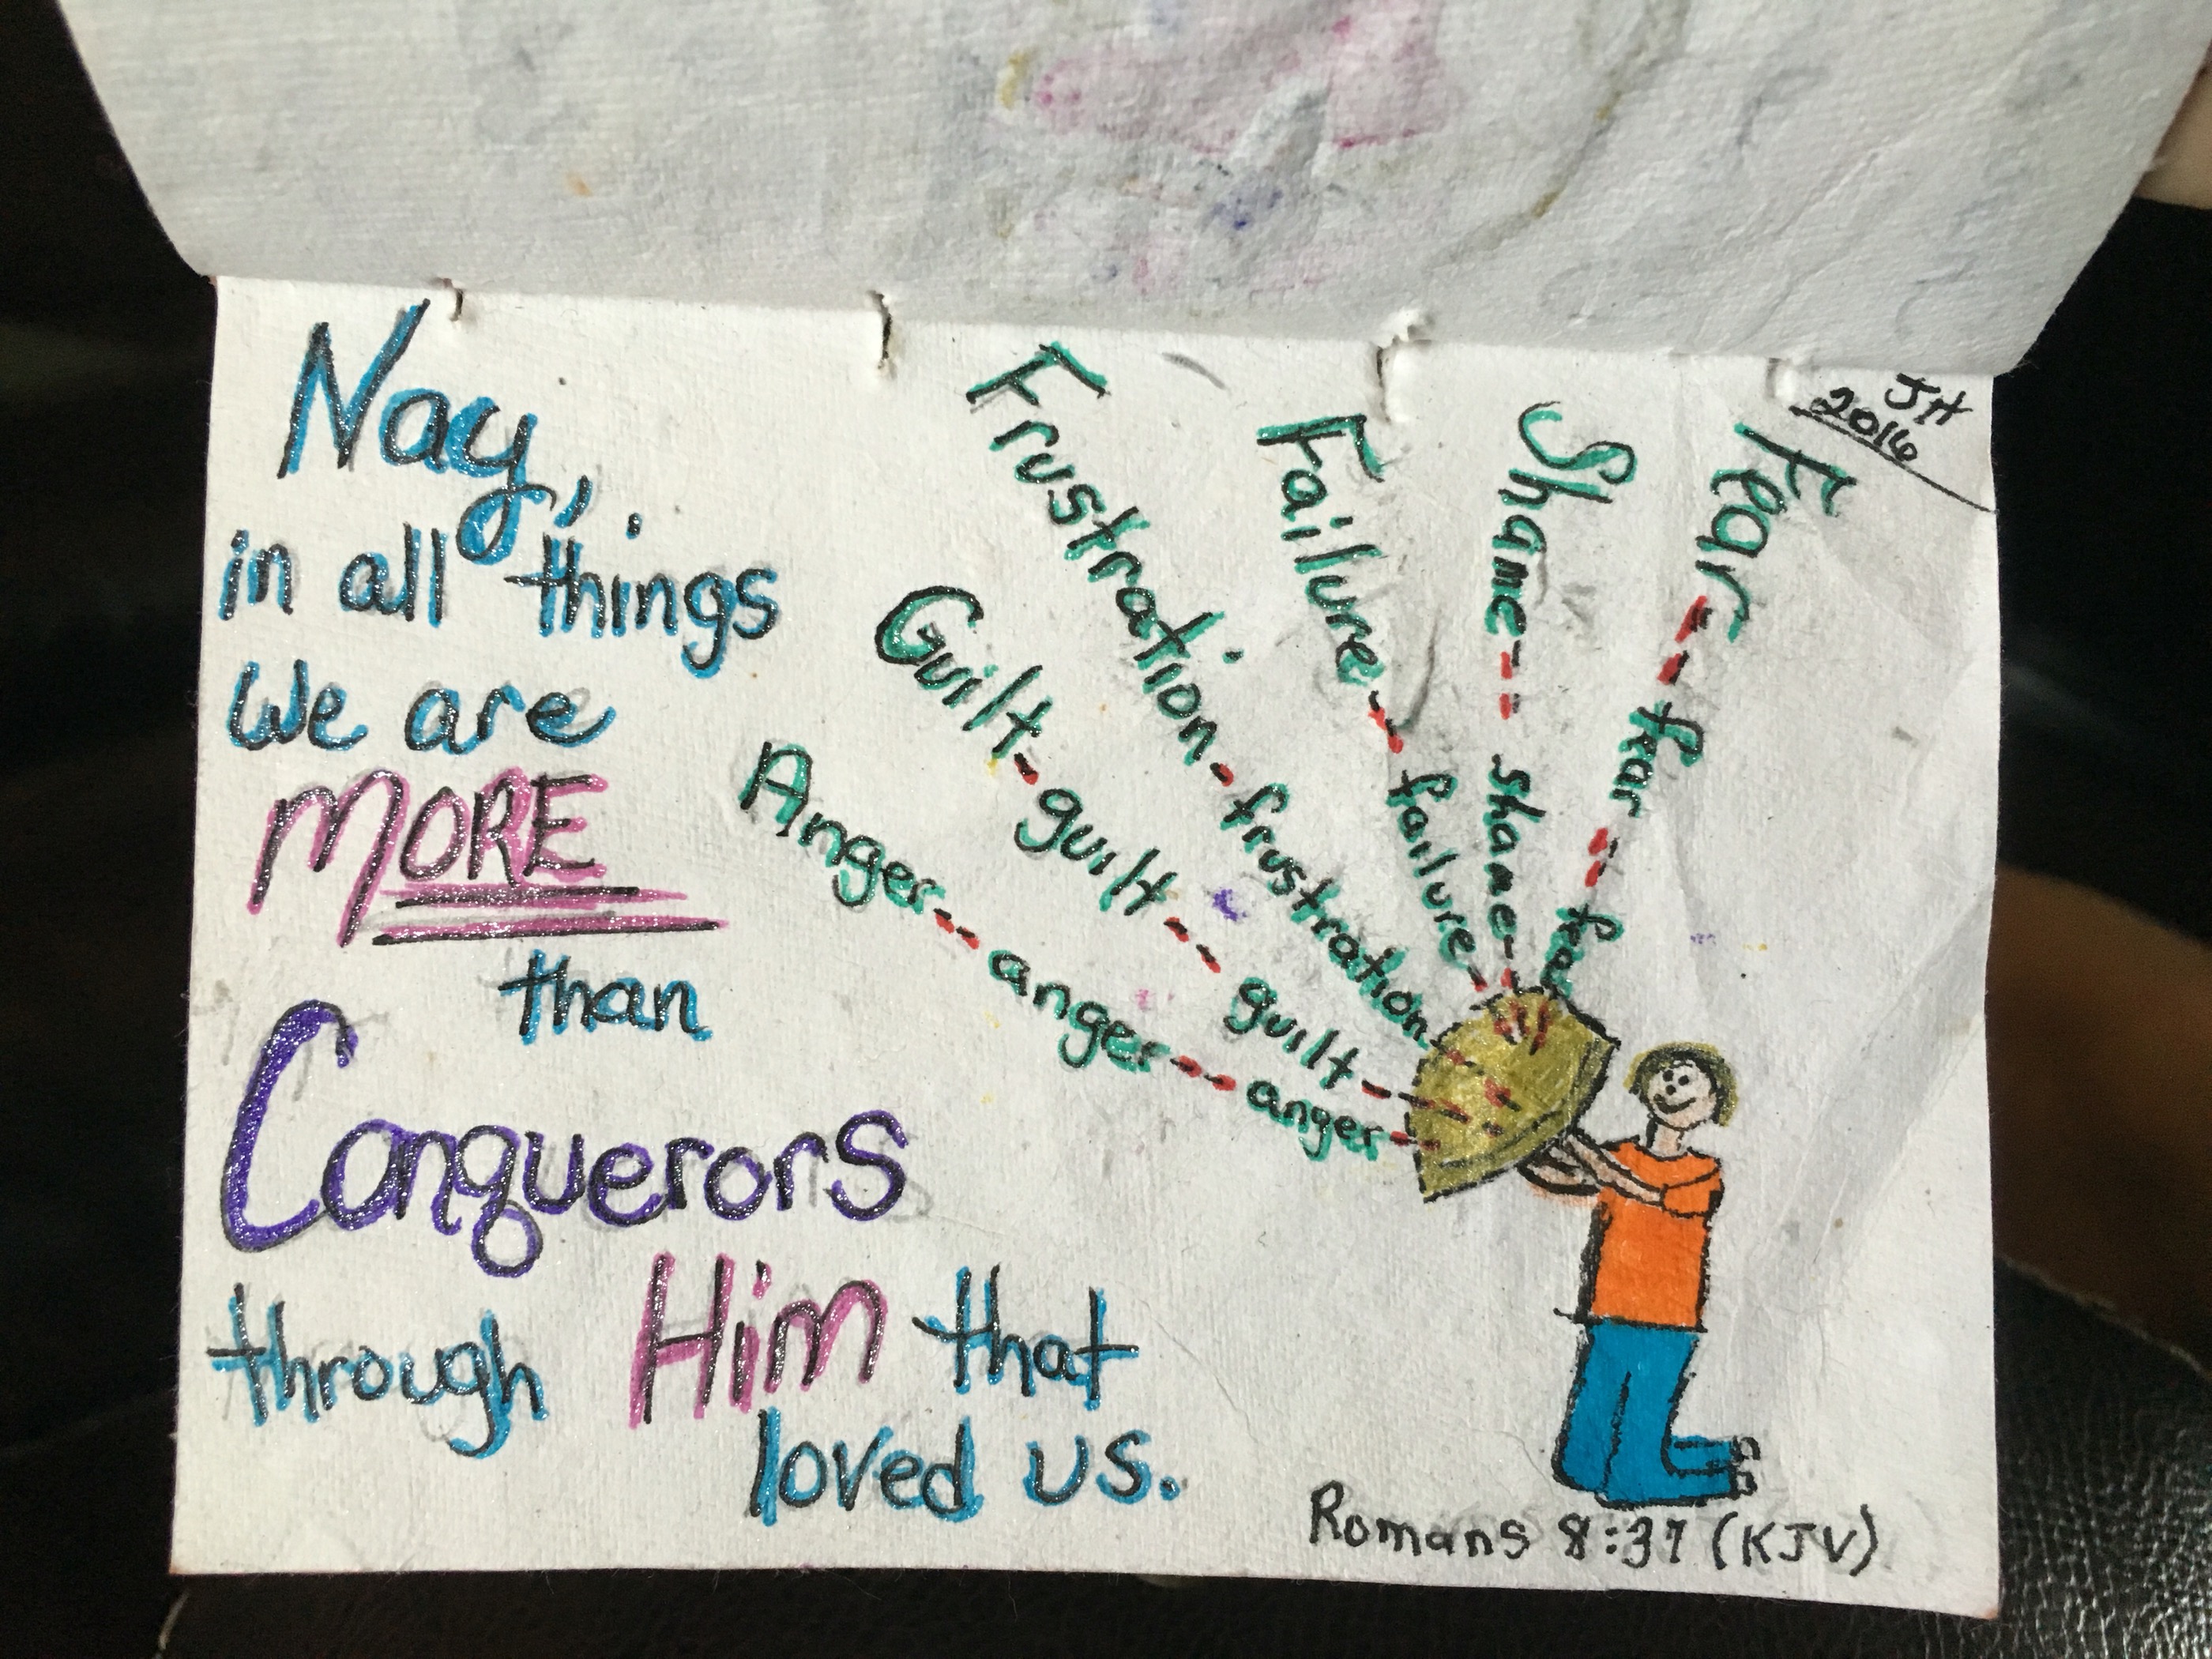 Nay,
in all things
we are
MORE
than
Conquerors
through Him that
loved us.
Anger -- anger -- anger
Guilt - guilt -- guilt
Frustration - frustration
Failure -- failure
Shame -- shame
Fear -- fear -- fear
JH
2016
Romans 8:37 (KJV)